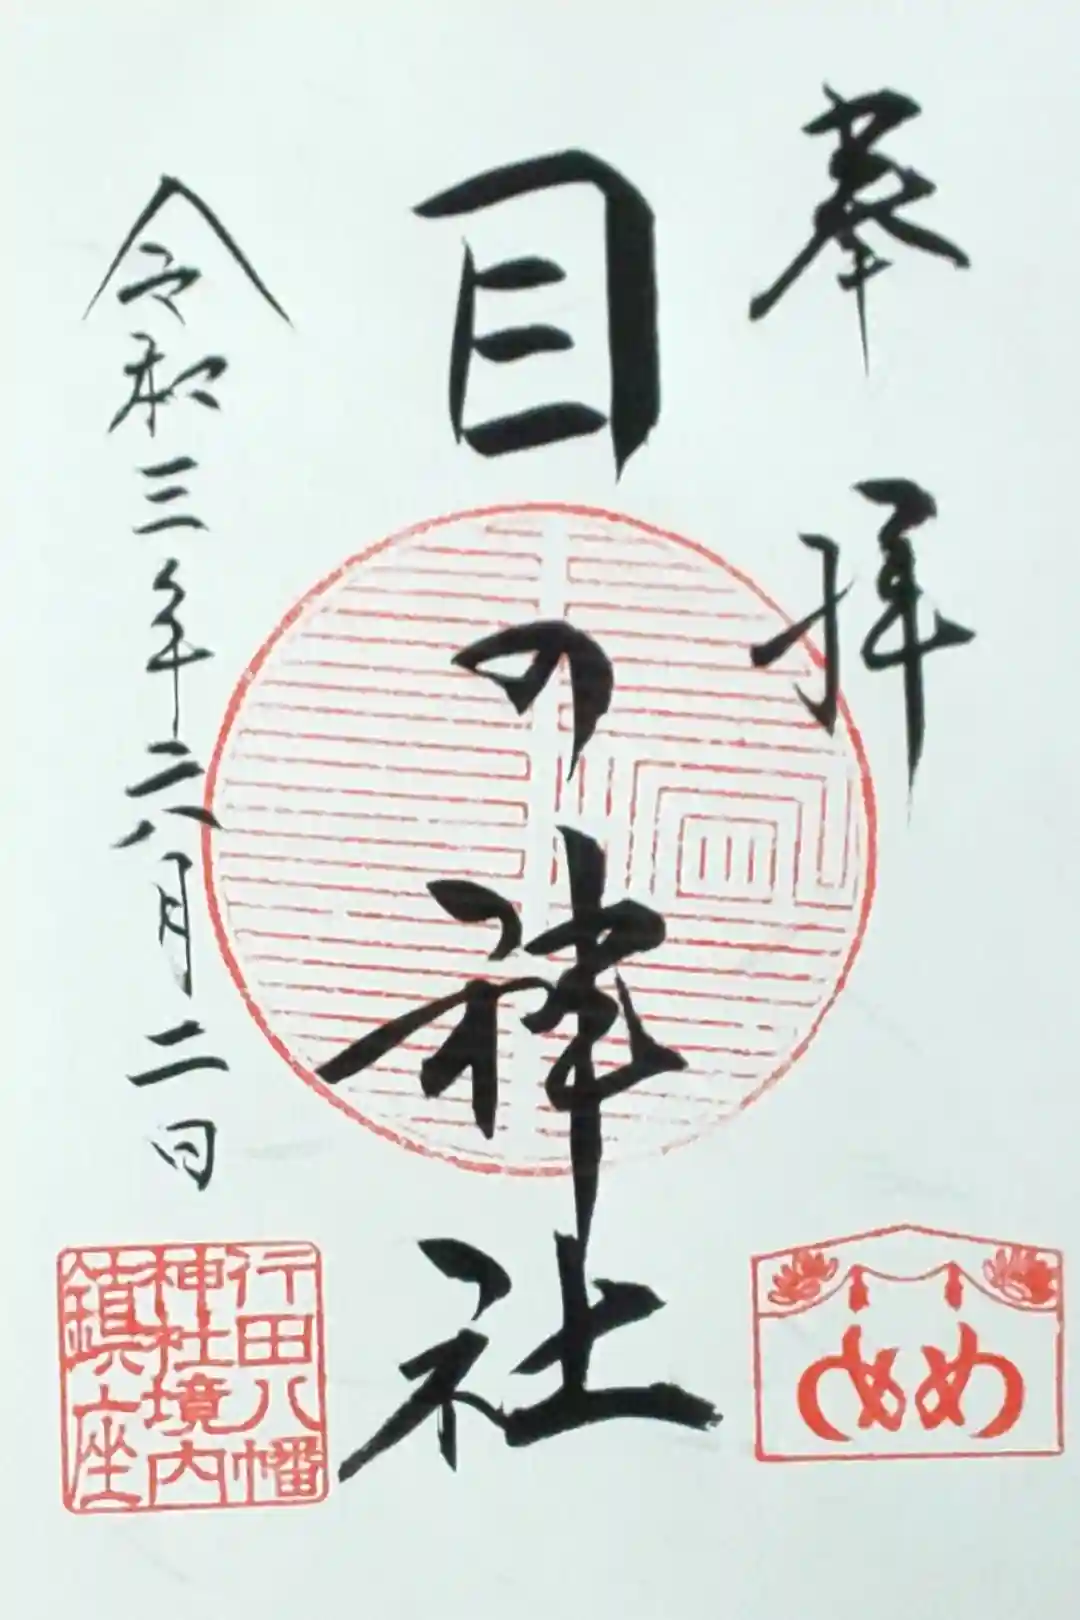 奉拝
目の神社
令和三年六月二日
めめ
行田八幡
神社境内
鎮座